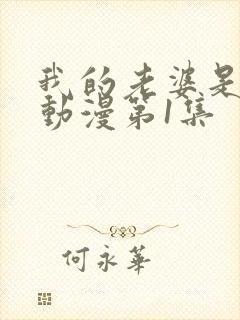 我的老婆是
動漫第1集
何永華